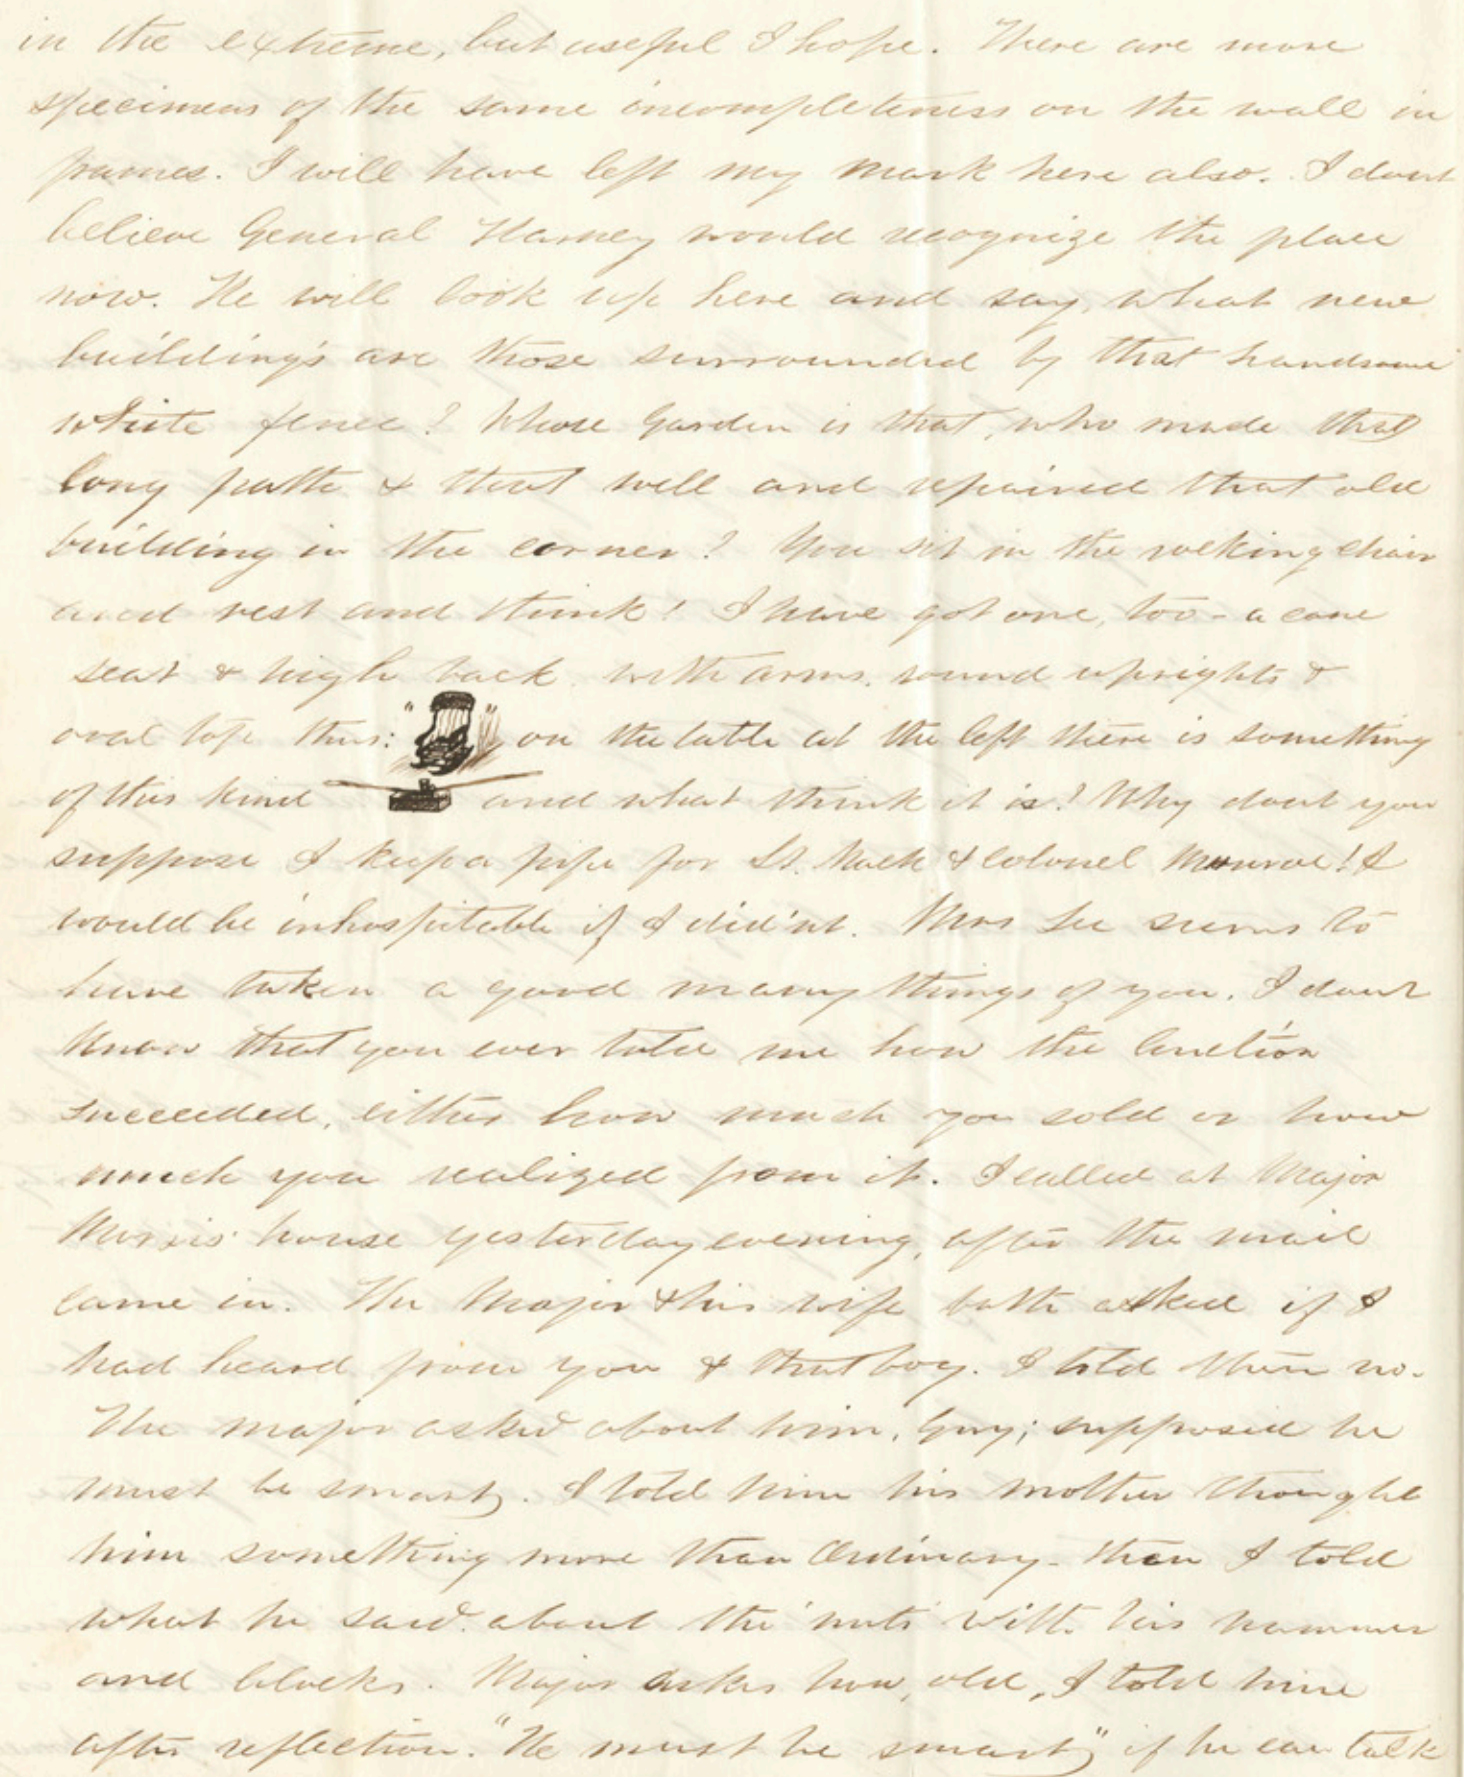 in the extreme, but useful I hope. There are more
specimens of the same incompleteness on the wall in
frames. I will have left my mark here also. I dont
believe General Harney would recognize the place
now. He will look up here and say, what new
buildings are those surrounded by that handsome
white fence? Whose Garden is that, who made that
long path & that well and repaired that old
building in the corner? You sit in the rocking chair
and rest and think! I have got one, too - a cane
seat & high back with arms, round uprights &
oval top thus: on the table at the left there is something
of this kind and what think it is? Why dont you
suppose I keep a pipe for Lt. & Colonel Munroe! I
would be inhospitable if I did'nt. Mrs Lee seems to
have taken a good many things of you. I dont
know that you ever told me how the auction
succeeded, either how much you sold or how
much you realized from it. I called at Major
house yesterday evening, after the mail
came in. The Major & his wife both asked if I
had heard from you & that boy. I told them no.
The major asked about him, Guy; supposed he
must be smart. I told him his mother thought
him something more than Ordinary - then I told
what he said about the nuts with his hammer
and blocks. Major askes how, old, I told him
after reflection. "He must be smart," if he can talk